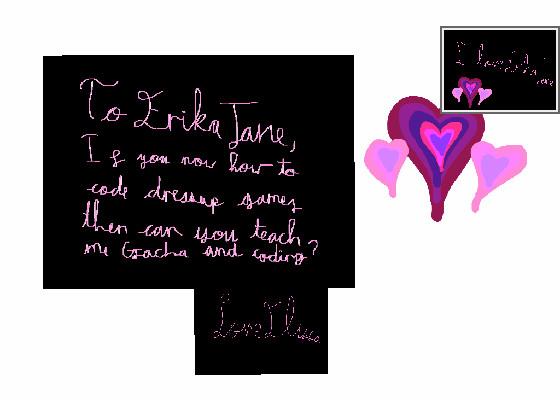 To Erika Jane,
If you now how to
code dressup games
then can you teach
me Gacha and coding?
Love
I love